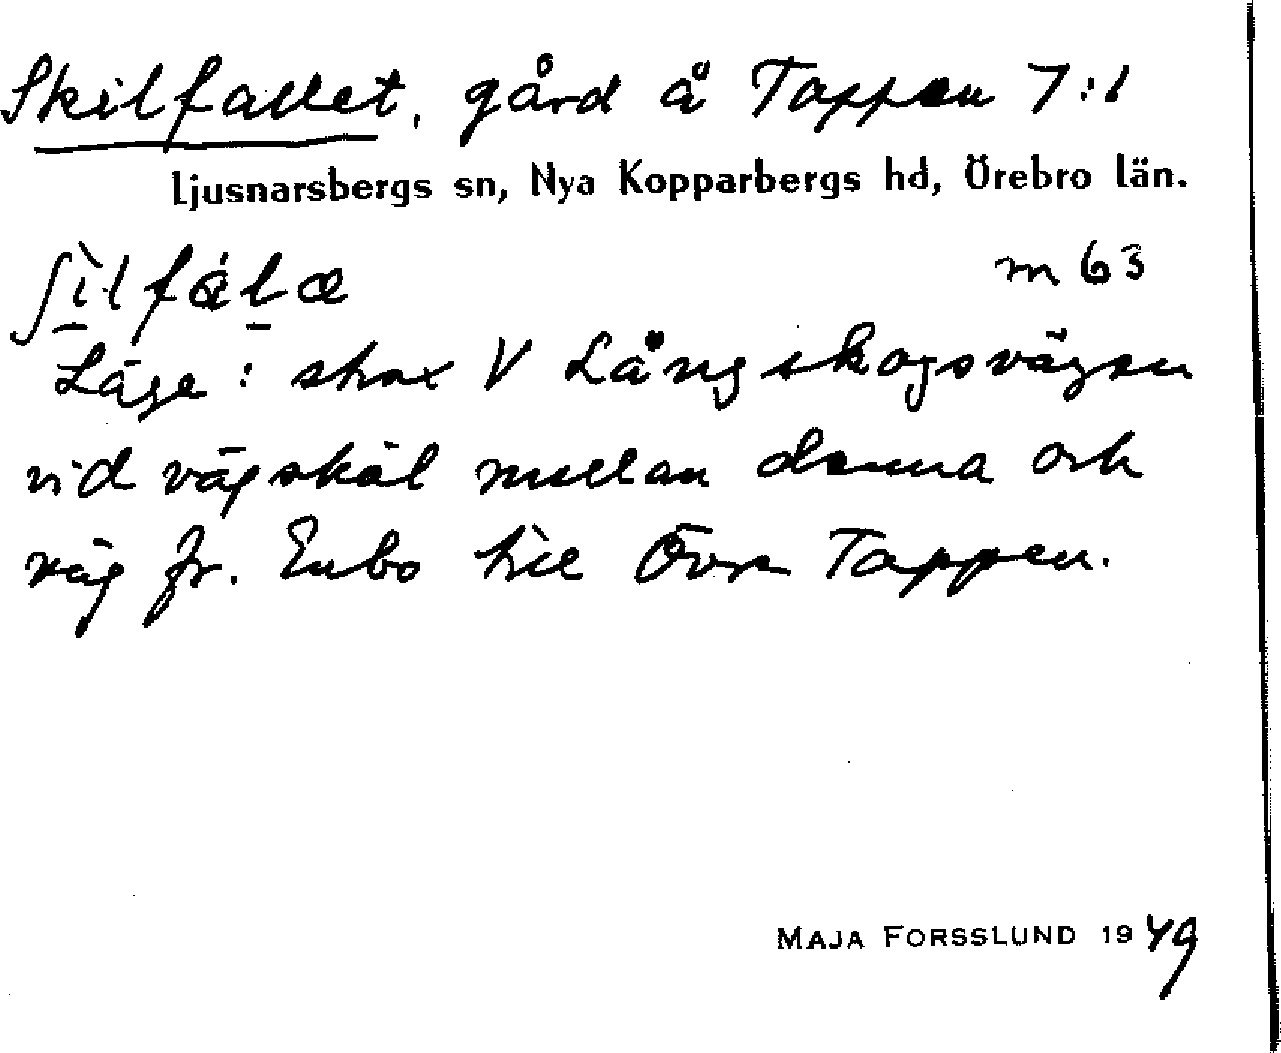 Skilfallet, gård å Tappen 7:1
Ljusnarsbergs sn, Nya Kopparbergs hd, Örebro län.
m 63
Läge: strax V Långskogsvägen
vid vägskäl mellan denna och
väg fr. Enbo till Övre Tappen.
MAJA FORSSLUND 1949